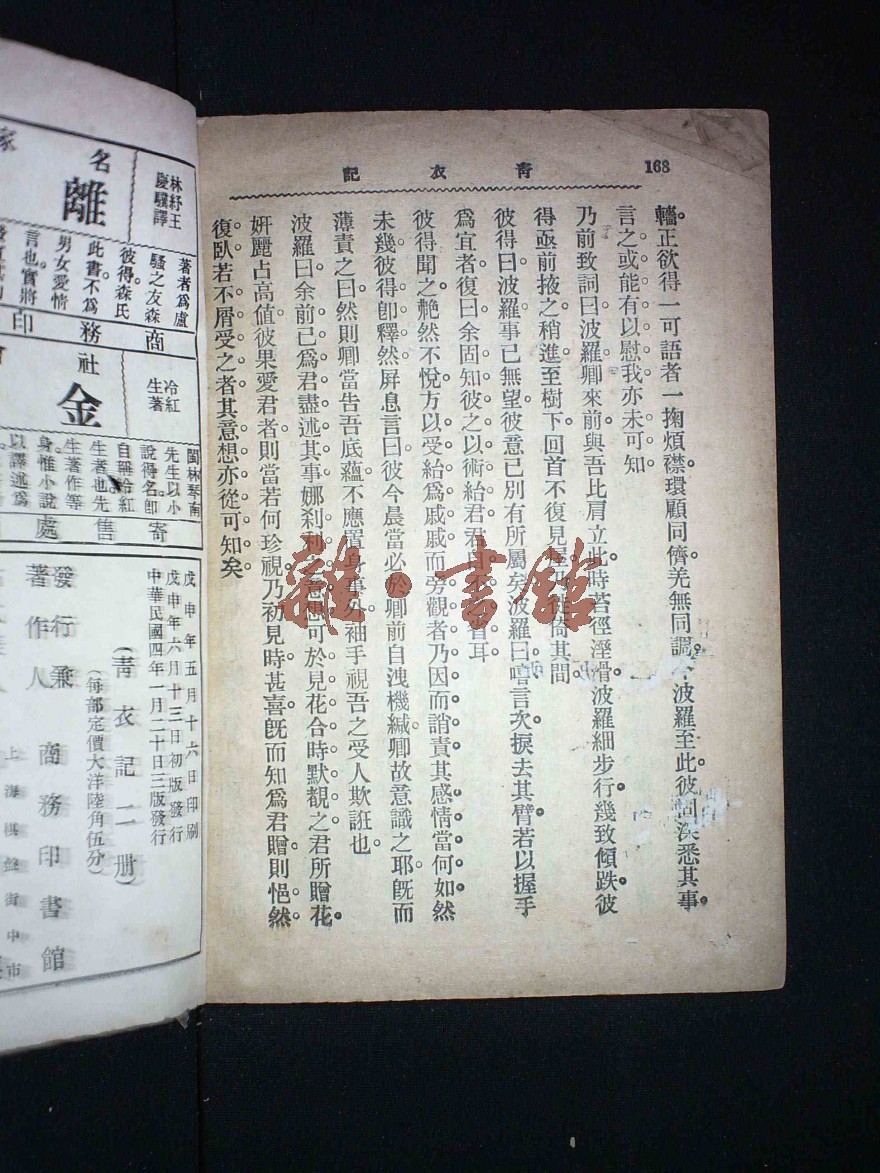 168
青衣記
轖。正欲得一可語者一掬煩襟環顧同儕羌無同調。波羅至此彼洞悉其事。
言之或能有以慰我亦未可知
乃前致詞曰波羅卿來前與吾比肩立此時苔徑溼滑波羅細步行幾致傾跌。彼
得亟前掖之稍進至樹下。回首不復見屋乃徙倚其間
彼得曰波羅事已無望彼意已別有所屬矣波羅曰嘻言次捩去其臂若以握手
爲宜者復曰余固知彼之以術紿君君耳
彼得聞之艴然不悅方以受紿爲戚戚而旁觀者乃因而誚責其感情當何如然
未幾彼得卽釋然屏息言曰彼今晨當必於卿前自洩機緘卿故意識之耶。旣而
薄責之曰然則卿當告吾底蘊不應置身事外袖手視吾之受人欺誑也
波羅曰。余前已爲君盡述其事娜刹利之意想可於見花合時默覩之君所贈花。
妍麗占高値彼果愛君者則當若何珍視乃初見時甚喜旣而知爲君贈則悒然
復臥若不屑受之者其意想亦從可知矣
雜·書館
林紓王慶驥譯
名
家
離
著者爲盧
騷之友森
彼得森氏
此書不爲
男女愛情
言也實將
商
務
印
冷紅生著
社
會
金
閩林琴南
先生以小
說得名卽
自稱冷紅
生者也先
生著作等
身惟小說
以譯述爲
寄
售
處
戊申年五月十六日印刷
戊申年六月十三日初版發行
中華民國四年一月二十日三版發行
(青衣記二册)
(每部定價大洋陸角伍分)
發行兼著作人 商務印書館
上海棋盤街中市